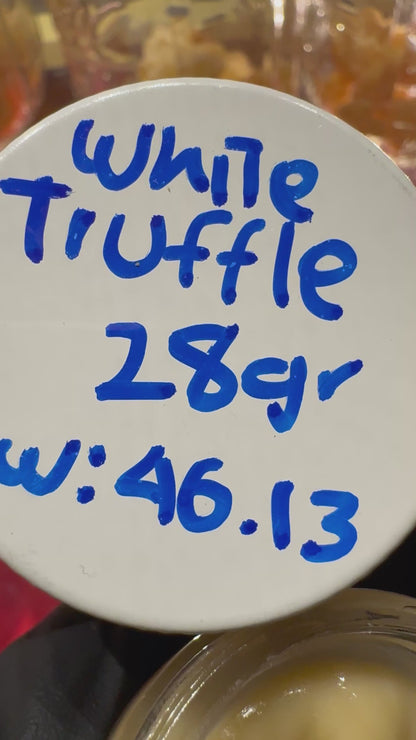 White
Truffle
28gr
W:46.13